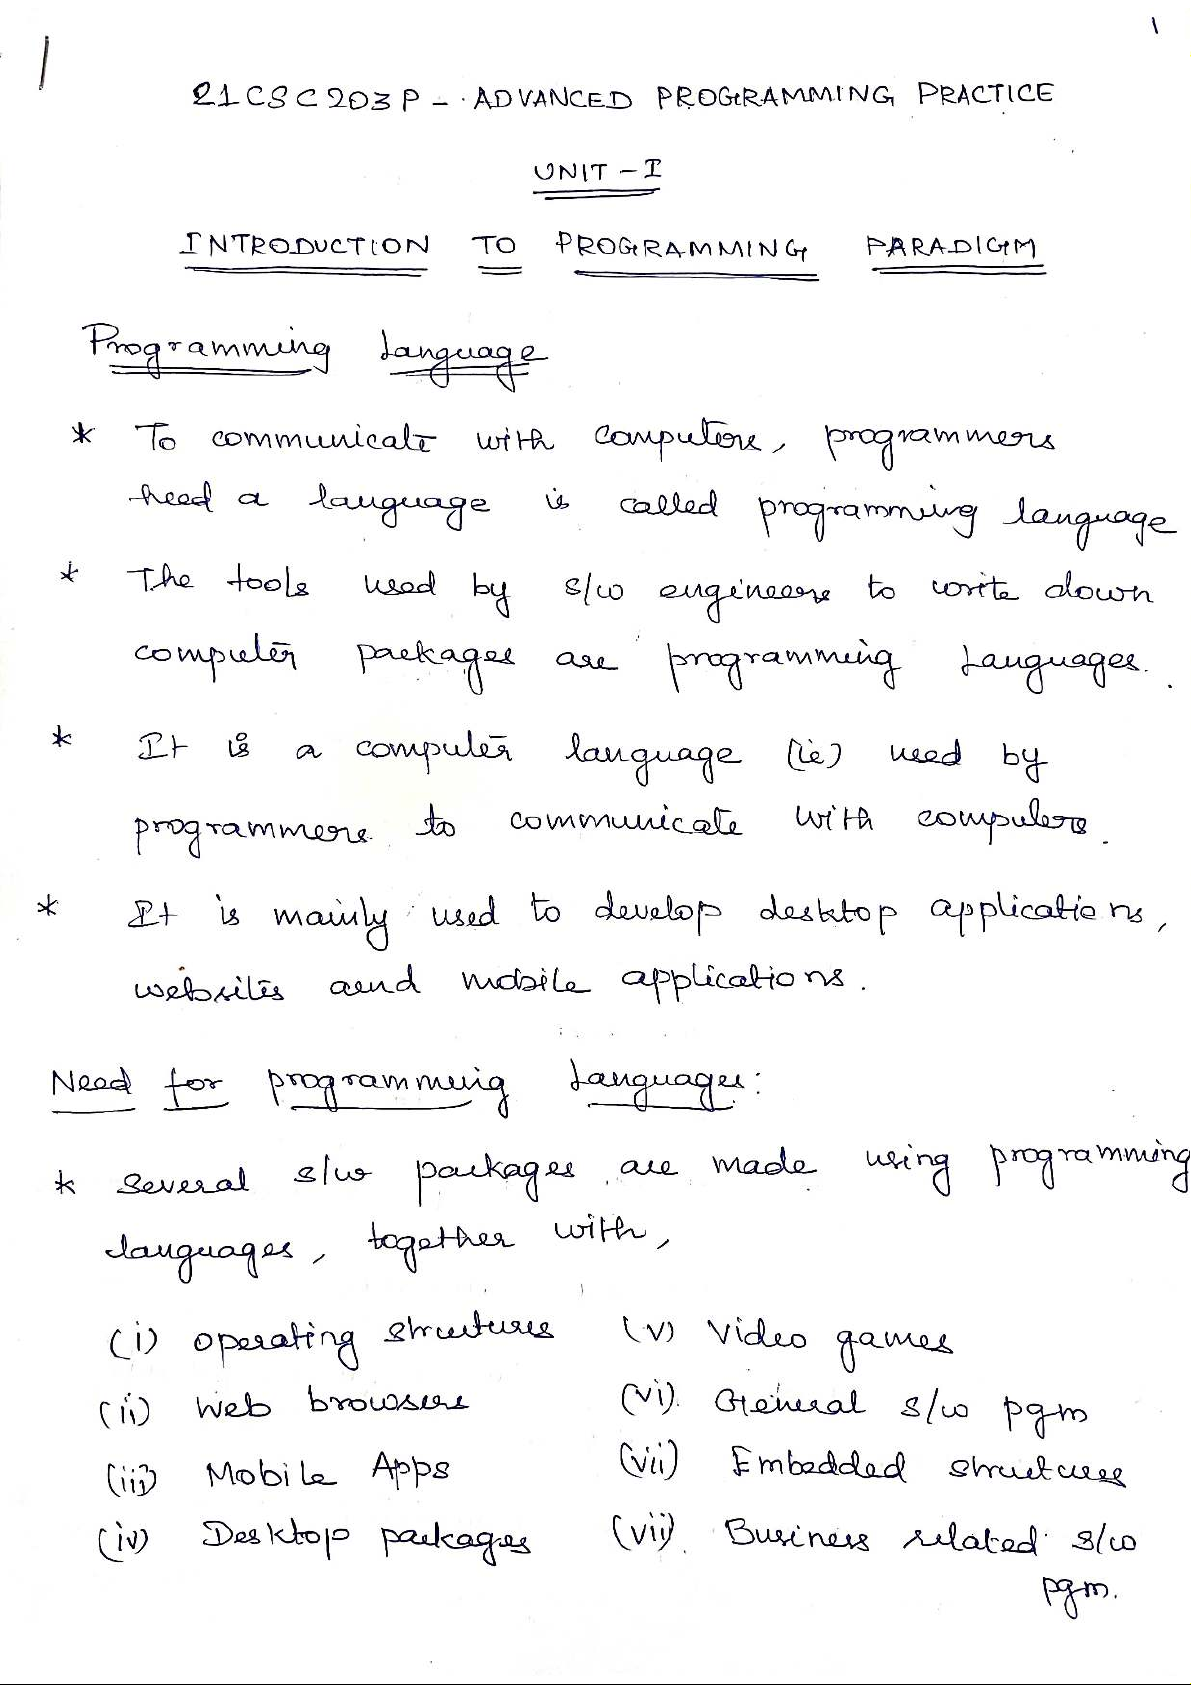 1
21CSC203P - ADVANCED PROGRAMMING PRACTICE
UNIT - I
INTRODUCTION TO PROGRAMMING PARADIGM
Programming Language
* To communicate with computers, programmers
need a language is called programming language
* The tools used by s/w engineers to write down
computer packages are programming languages.
* It is a computer language (ie) used by
programmers to communicate with computers.
* It is mainly used to develop desktop applications,
websites and mobile applications.
Need for programming languages:
* Several s/w packages are made using programming
languages, together with,
(i) operating structures (v) Video games
(ii) Web browsers (vi) General s/w pgm
(iii) Mobile Apps (vii) Embedded structures
(iv) Desktop packages (vii) Business related s/w
pgm.